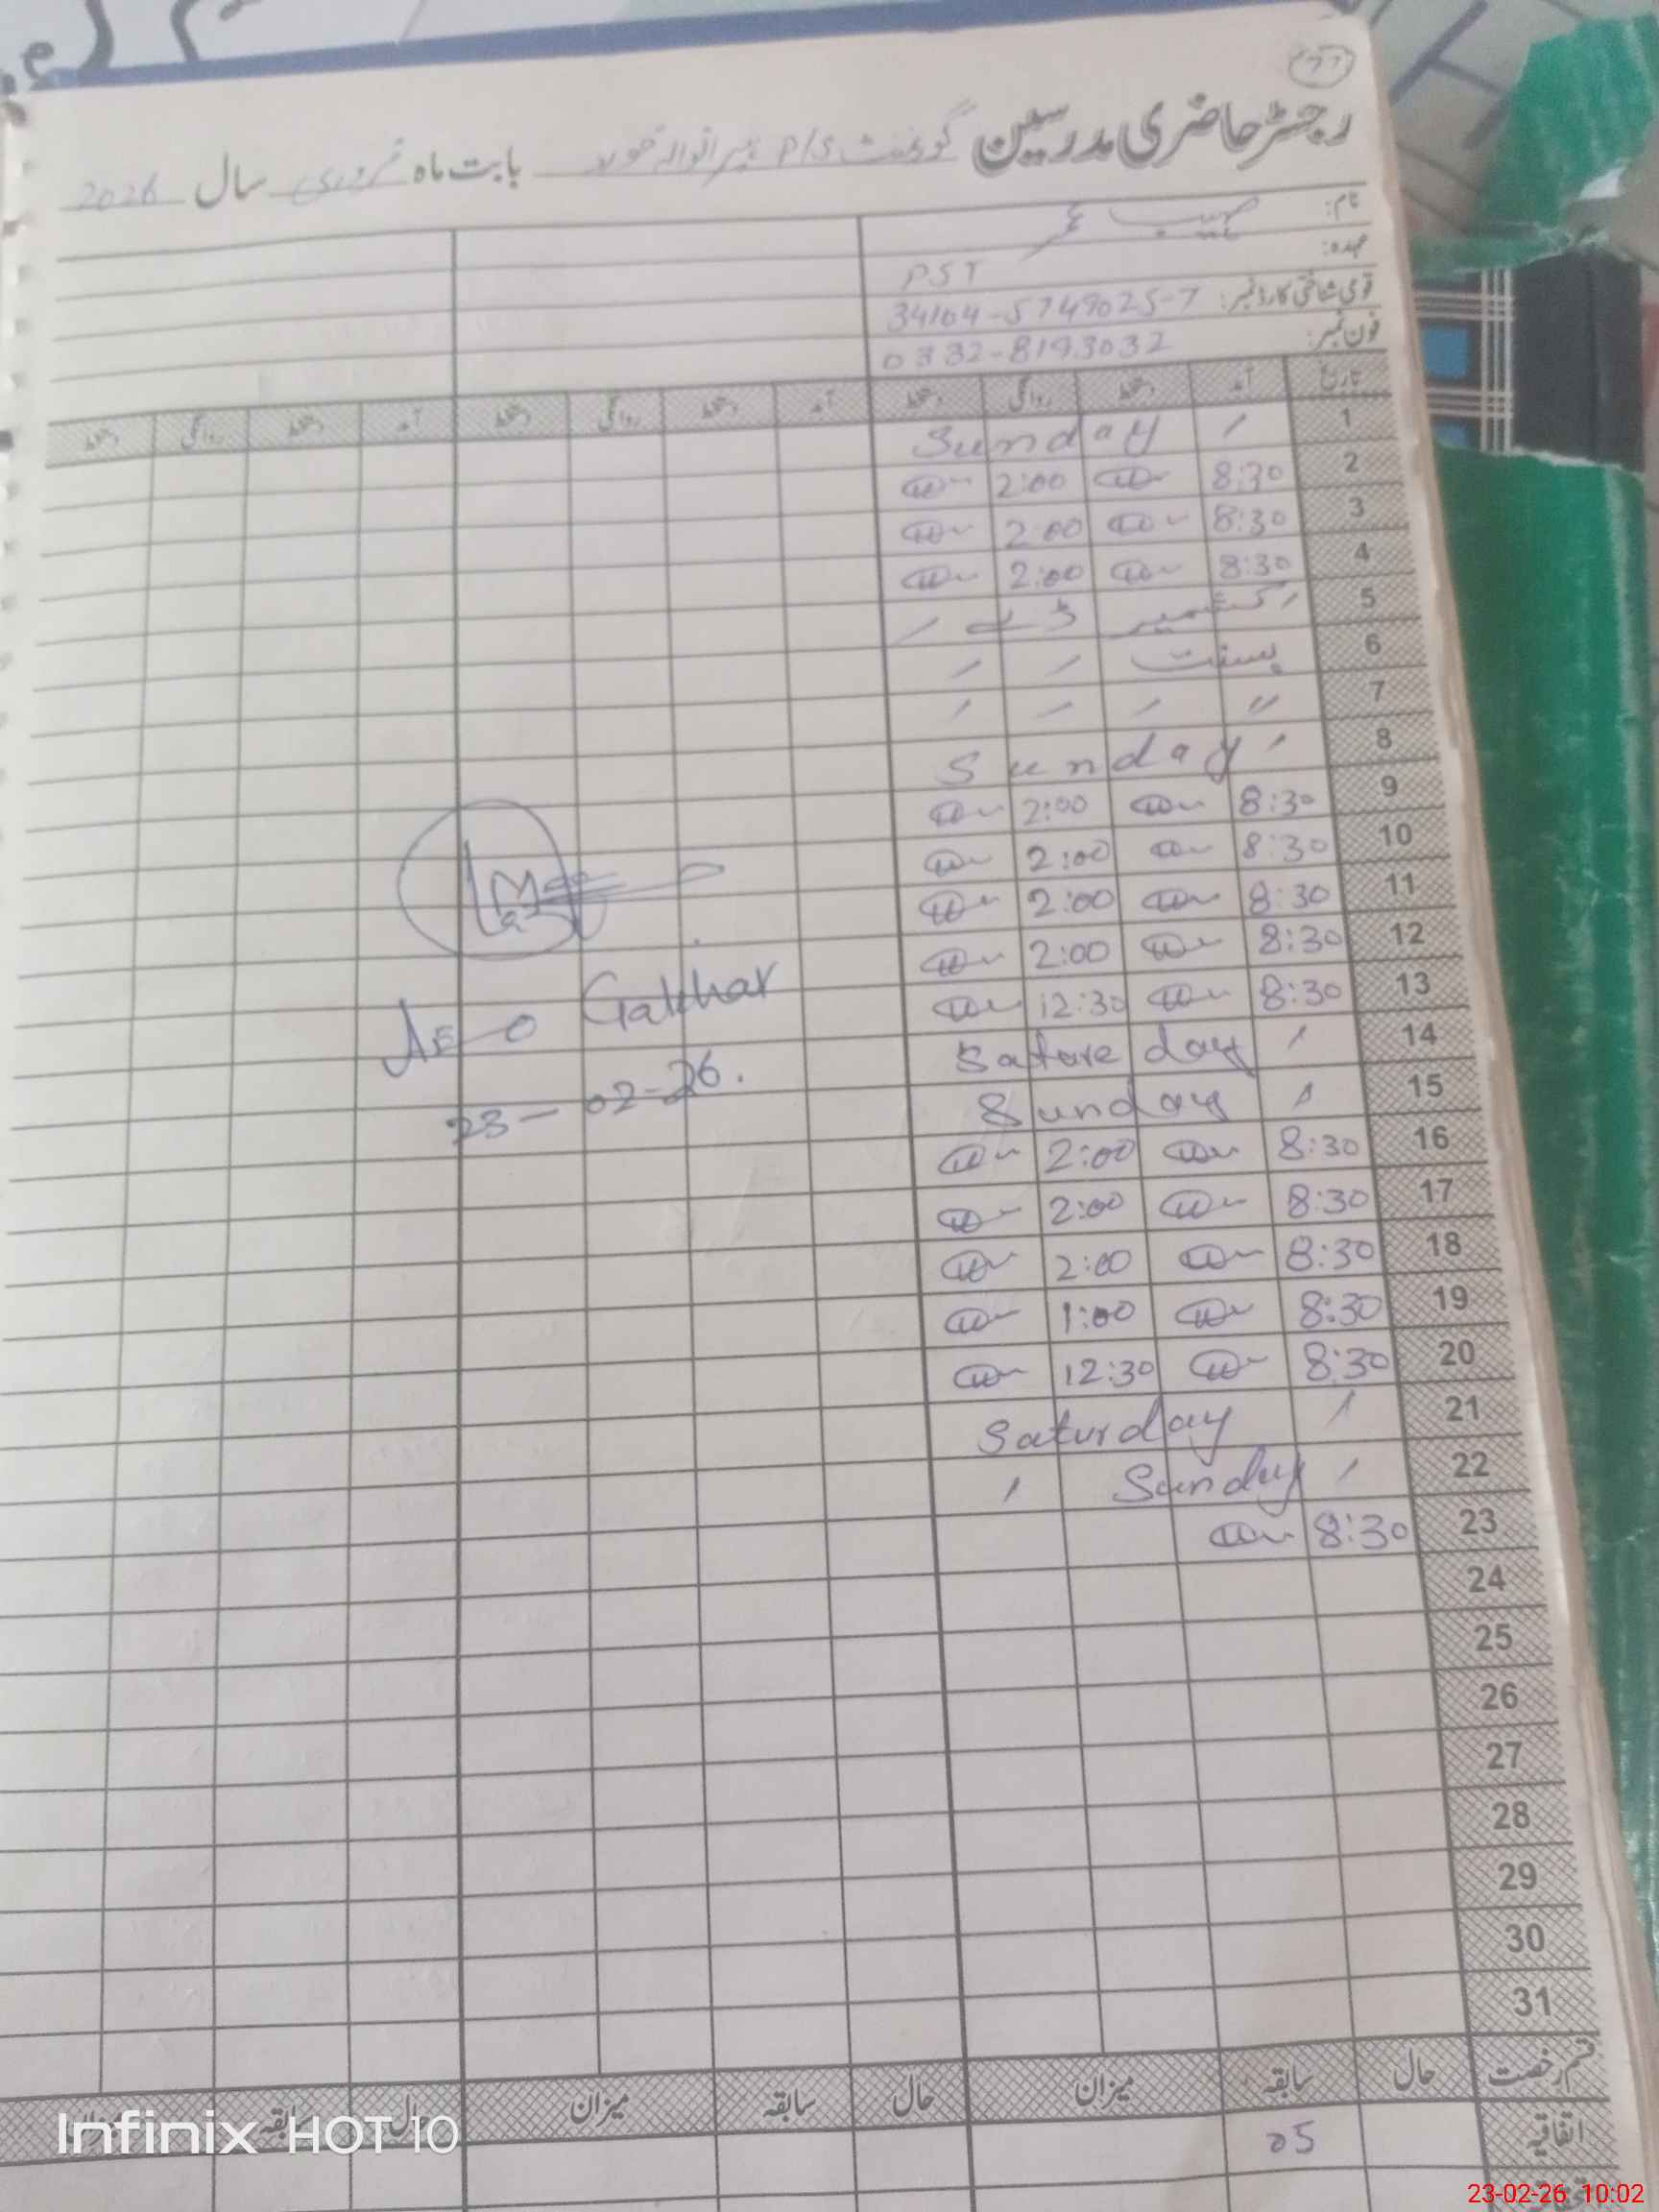 رجسٹر حاضری مدرسین گورنمنٹ P/S بابت ماہ فروری سال 2026
نام: صہیب عمر
عہدہ: PST
قومی شناختی کارڈ نمبر: 34104-5749025-7
فون نمبر: 0332-8193032
تاریخ آمد دستخط روانگی دستخط آمد دستخط روانگی دستخط آمد دستخط روانگی دستخط
1 Sunday
2 8:30 2:00
3 8:30 2:00
4 8:30 2:00
5 کشمیر ڈے
6 بسنت
7 〃
8 Sunday
9 8:30 2:00
10 8:30 2:00
11 8:30 2:00
12 8:30 2:00
13 8:30 12:30
14 Sature day
15 Sunday
16 8:30 2:00
17 8:30 2:00
18 8:30 2:00
19 8:30 1:00
20 8:30 12:30
21 Saturday
22 Sunday
23 8:30
24
25
26
27
28
29
30
31
AEO Gakhar
23-02-26.
قسم رخصت حال سابقہ میزان حال سابقہ میزان حال سابقہ
اتفاقیہ 05
Infinix HOT 10
23-02-26 10:02